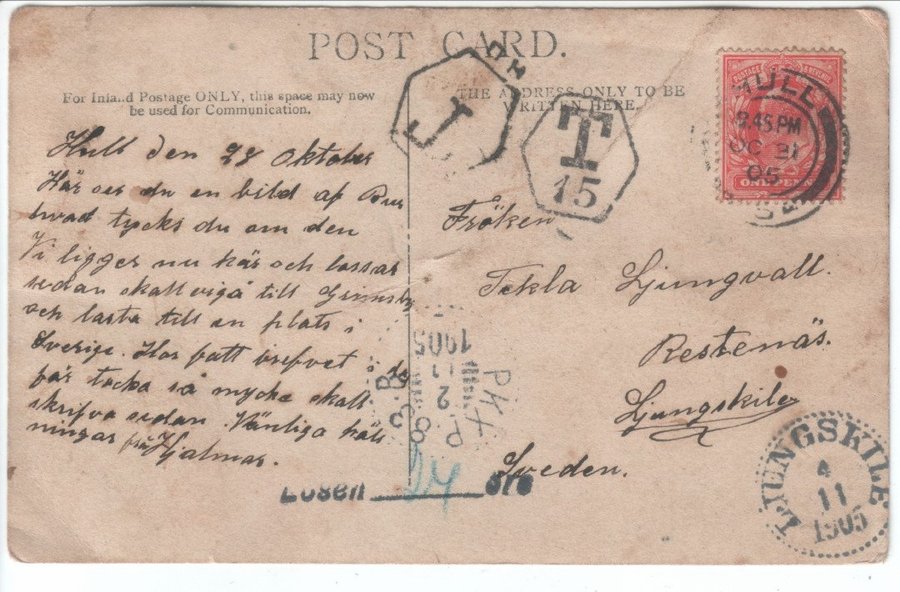 POST CARD.
For Inland Postage ONLY, this space may now
be used for Communication.
THE ADDRESS ONLY TO BE
WRITTEN HERE.
Hull den 28 Oktober
Här ser du en bild af
hvad tycks du om den
Vi ligger nu här och lossar
sedan skall vi gå till Grimsby
och lasta till en plats i
Sverige. Har fått brefvet i
får tacka så mycke skall
skrifva sedan Vänliga häls
ningar från Hjalmar.
Fröken
Tekla Ljungvall.
Restenäs.
Ljungskile
Sweden.
T
T
15
POSTAGE
ONE PENNY
HULL
9 45 PM
OC 31
05
PKXP
2 11
1905
Lösen 24 öre
LJUNGSKILE
4
11
1905